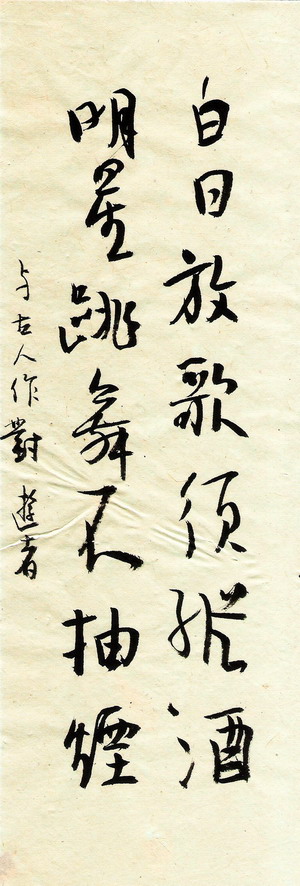 白日放歌須縱酒
明星跳舞不抽煙
与古人作對